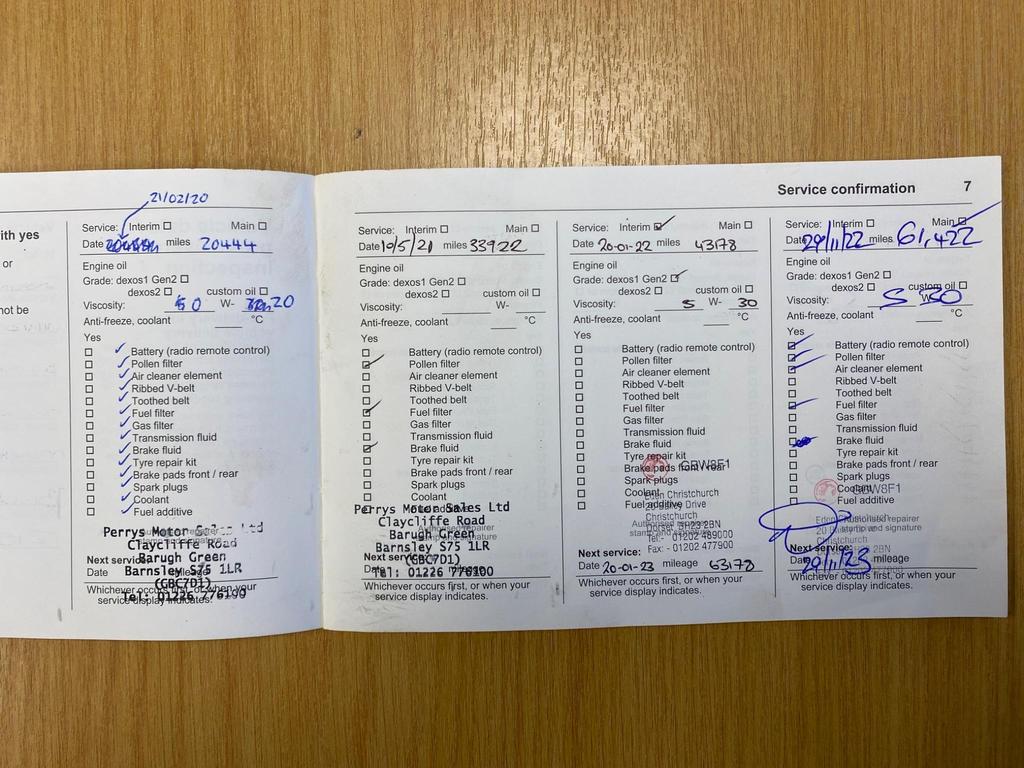 ith yes
or
not be
21/02/20
Service: Interim Main
Date miles 20444
Engine oil
Grade: dexos1 Gen2
dexos2 custom oil
Viscosity: W- 20
Anti-freeze, coolant °C
Yes
Battery (radio remote control)
Pollen filter
Air cleaner element
Ribbed V-belt
Toothed belt
Fuel filter
Gas filter
Transmission fluid
Brake fluid
Tyre repair kit
Brake pads front / rear
Spark plugs
Coolant
Fuel additive
Perrys Motor Sales Ltd
Claycliffe Road
Barugh Green
Next service:
Barnsley S75 1LR
Date mileage
(GBC7D1)
Whichever occurs first, or when your
Tel: 01226 776100
service display indicates.
Service confirmation 7
Service: Interim Main
Date 10/5/21 miles 33922
Engine oil
Grade: dexos1 Gen2
dexos2 custom oil
Viscosity: W-
Anti-freeze, coolant °C
Yes
Battery (radio remote control)
Pollen filter
Air cleaner element
Ribbed V-belt
Toothed belt
Fuel filter
Gas filter
Transmission fluid
Brake fluid
Tyre repair kit
Brake pads front / rear
Spark plugs
Coolant
Fuel additive
Perrys Motor Sales Ltd
Claycliffe Road
Authorised repairer
Barugh Green
stamp and signature
Barnsley S75 1LR
Next service:
(GBC7D1)
Date mileage
Tel: 01226 776100
Whichever occurs first, or when your
service display indicates.
Service: Interim Main
Date 20-01-22 miles 43178
Engine oil
Grade: dexos1 Gen2
dexos2 custom oil
Viscosity: 5 W- 30
Anti-freeze, coolant °C
Yes
Battery (radio remote control)
Pollen filter
Air cleaner element
Ribbed V-belt
Toothed belt
Fuel filter
Gas filter
Transmission fluid
Brake fluid
Tyre repair kit
Brake pads front / rear
GBW8F1
Spark plugs
Coolant
Christchurch
Fuel additive
Drive
Authorised repairer
Dorset BH23 2BN
stamp and signature
Tel:- 01202 489000
Fax: - 01202 477900
Next service:
Date 20-01-23 mileage 63178
Whichever occurs first, or when your
service display indicates.
Service: Interim Main
Date 29/11/22 miles 61,422
Engine oil
Grade: dexos1 Gen2
dexos2 custom oil
Viscosity: 5 W- 30
Anti-freeze, coolant °C
Yes
Battery (radio remote control)
Pollen filter
Air cleaner element
Ribbed V-belt
Toothed belt
Fuel filter
Gas filter
Transmission fluid
Brake fluid
Tyre repair kit
Brake pads front / rear
Spark plugs
Coolant
GBW8F1
Fuel additive
Authorised repairer
stamp and signature
Christchurch
Next service:
2BN
Date 29/11/23 mileage
Whichever occurs first, or when your
service display indicates.